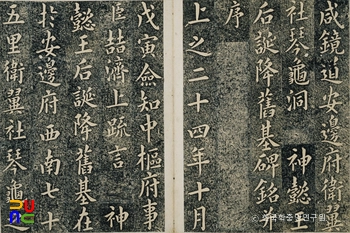 咸鏡道安邊府衛翼
社琴龜洞 神懿王
后誕降舊基碑銘并
序
上之二十四年十月
戊寅僉知中樞府事
臣喆濟上疏言 神
懿王后誕降舊基在
於安邊府西南七十
五里衛翼社琴龜之
한국학중앙연구원